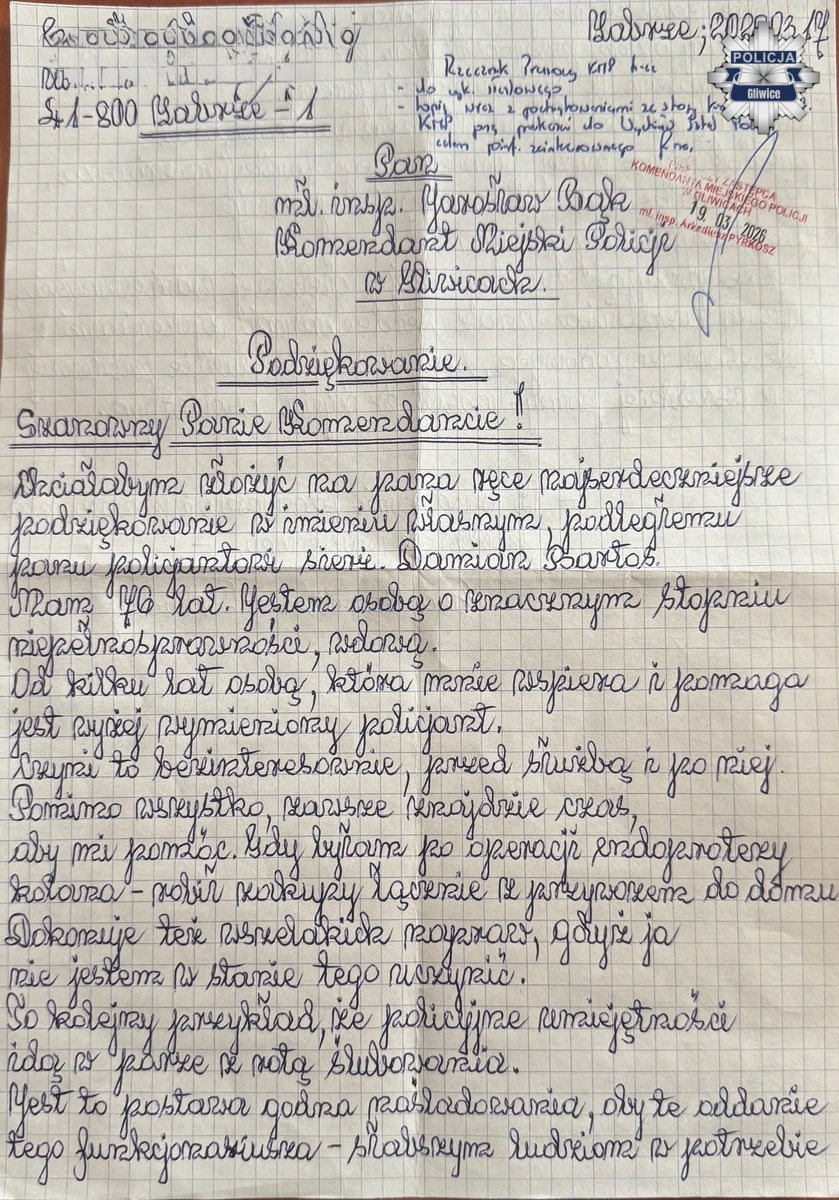 Zabrze; 2026.03.17
POLICJA
Gliwice
41-800 Zabrze - 1
Rzecznik Prasowy KMP
- do
- kopię wraz z
KMP
celem
Pan
mł. insp. Jarosław Bąk
Komendant Miejski Policji
w Gliwicach.
ZASTĘPCA
KOMENDANTA MIEJSKIEGO POLICJI
W GLIWICACH
19. 03. 2026
mł. insp. Arkadiusz PYRKOSZ
Podziękowanie.
Szanowny Panie Komendancie!
Chciałabym złożyć na pana ręce najserdeczniejsze
podziękowanie w imieniu własnym, podległemu
panu policjantowi sierż. Damian Bartos.
Mam 76 lat. Jestem osobą o znacznym stopniu
niepełnosprawności, wdową.
Od kilku lat osobą, która mnie wspiera i pomaga
jest wyżej wymieniony policjant.
Czyni to bezinteresownie, przed służbą i po niej.
Pomimo wszystko, zawsze znajdzie czas,
aby mi pomóc. Gdy byłam po operacji endoprotezy
kolana - robił zakupy łącznie z przywozem do domu
Dokonuje też wszelakich napraw, gdyż ja
nie jestem w stanie tego uczynić.
To kolejny przykład, że policyjne umiejętności
idą w parze z rotą ślubowania.
Jest to postawa godna naśladowania, aby te oddanie
tego funkcjonariusza - słabszym ludziom w potrzebie